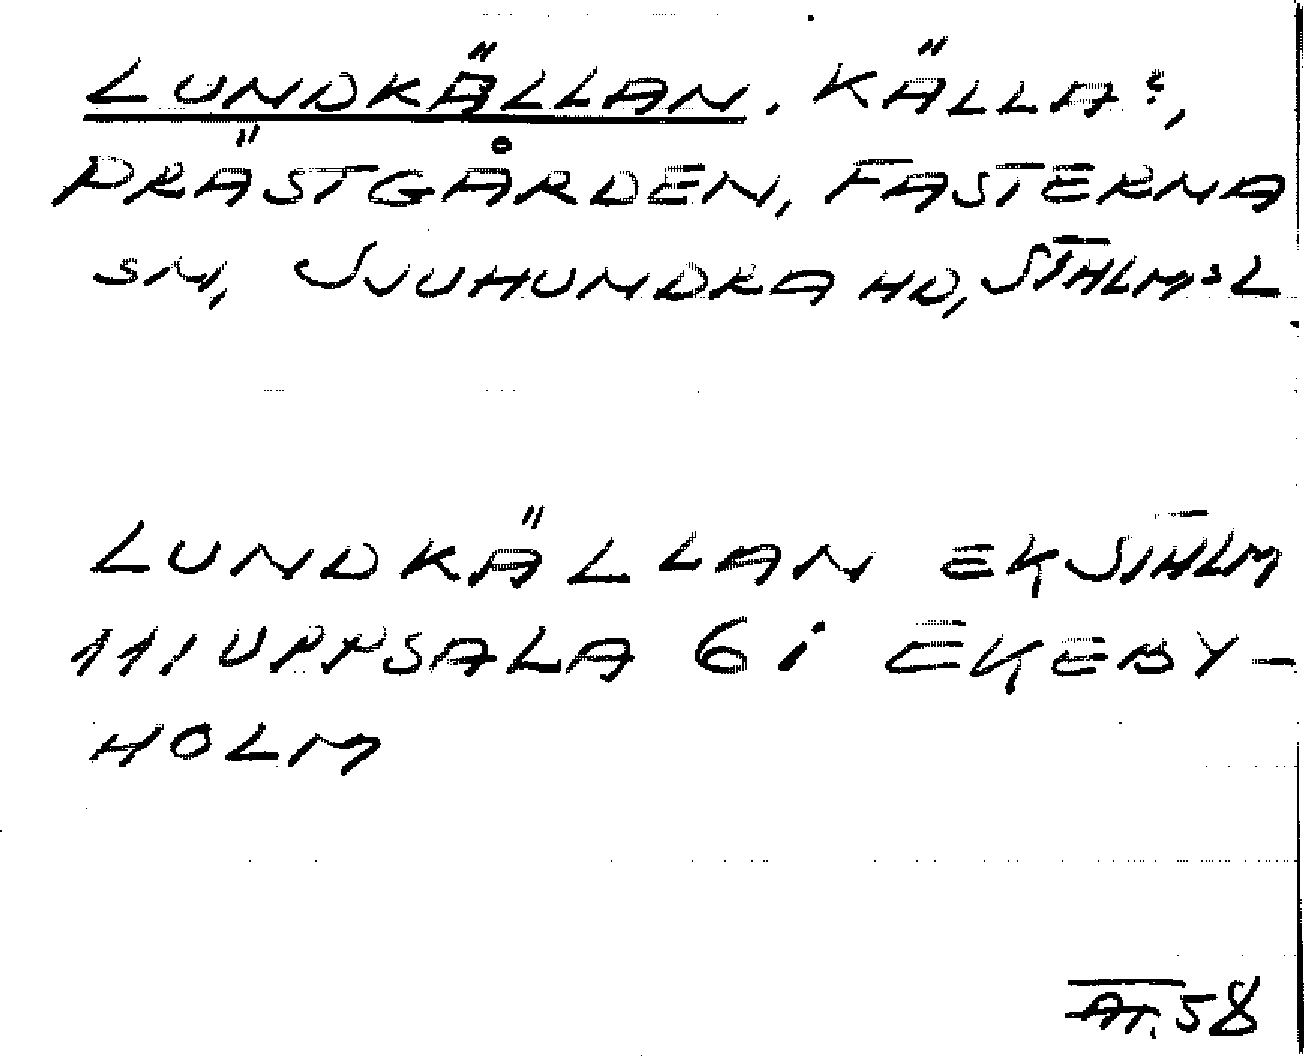 LUNDKÄLLAN. KÄLLA:,
PRÄSTGÅRDEN, FASTERNA
SN, SJUHUNDRA HD, STHLM:L
LUNDKÄLLAN EK STHLM
111 UPPSALA 6i EKEBY-
HOLM
58